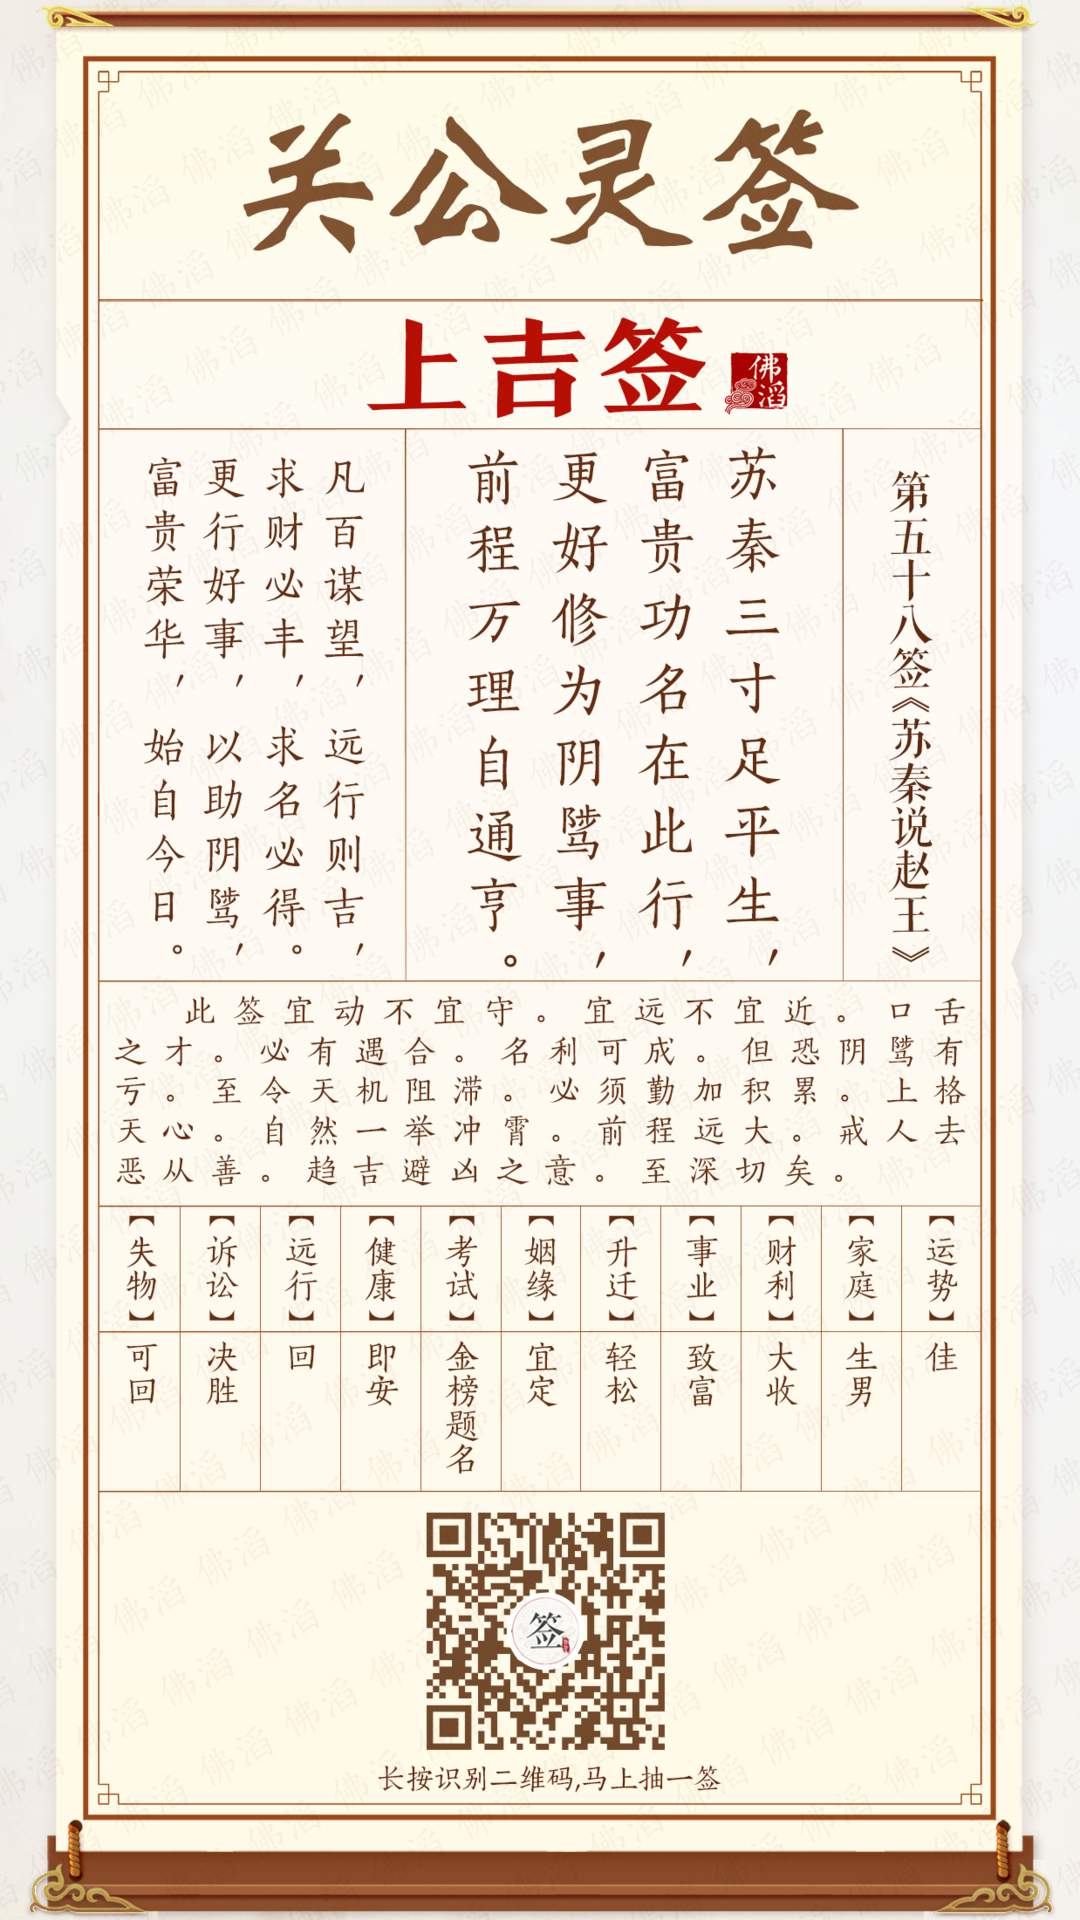 关公灵签
上吉签
佛滔
第五十八签《苏秦说赵王》
苏秦三寸足平生，
富贵功名在此行，
更好修为阴骘事，
前程万理自通亨。
凡百谋望，远行则吉，
求财必丰，求名必得。
更行好事，以助阴骘，
富贵荣华，始自今日。
此签宜动不宜守。宜远不宜近。口舌
之才。必有遇合。名利可成。但恐阴骘有
亏。至令天机阻滞。必须勤加积累。上格
天心。自然一举冲霄。前程远大。戒人去
恶从善。趋吉避凶之意。至深切矣。
【运势】
佳
【家庭】
生男
【财利】
大收
【事业】
致富
【升迁】
轻松
【姻缘】
宜定
【考试】
金榜题名
【健康】
即安
【远行】
回
【诉讼】
决胜
【失物】
可回
签
长按识别二维码,马上抽一签